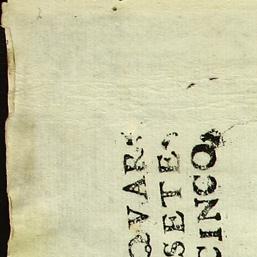 QVAR
SETE
CINCO